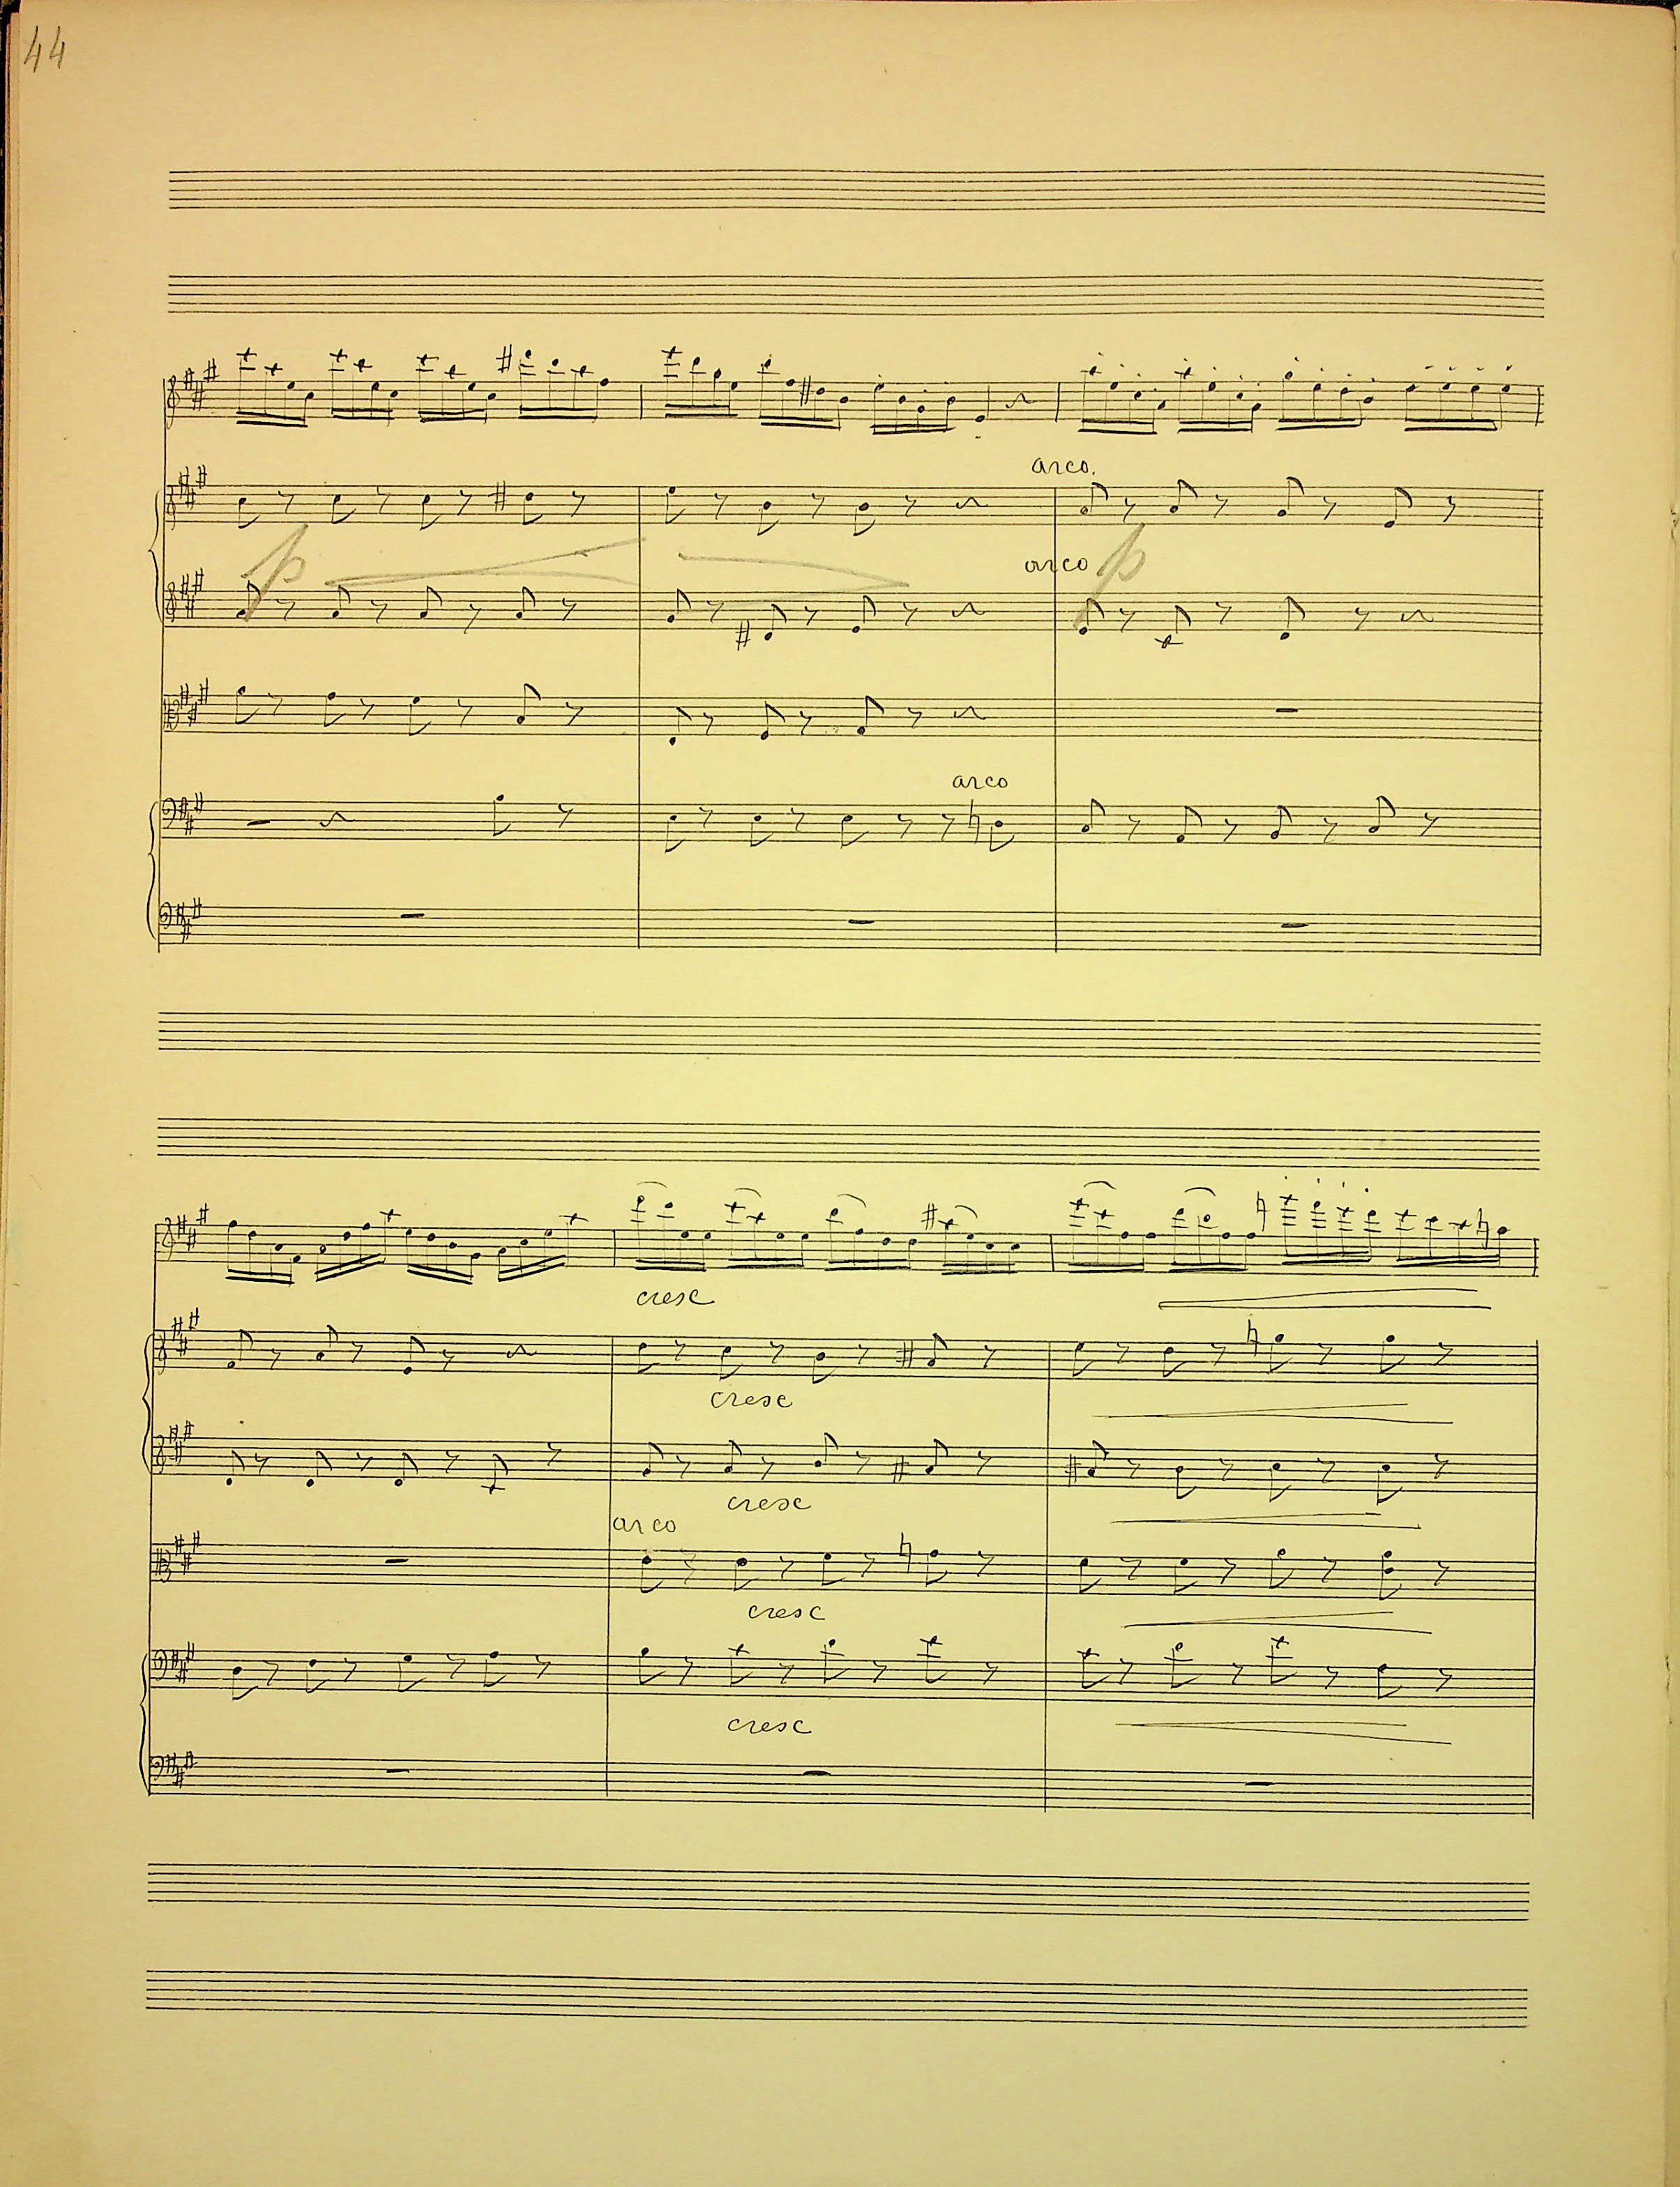 44
arco.
arco
p
p
arco
cresc
cresc
cresc
arco
cresc
cresc